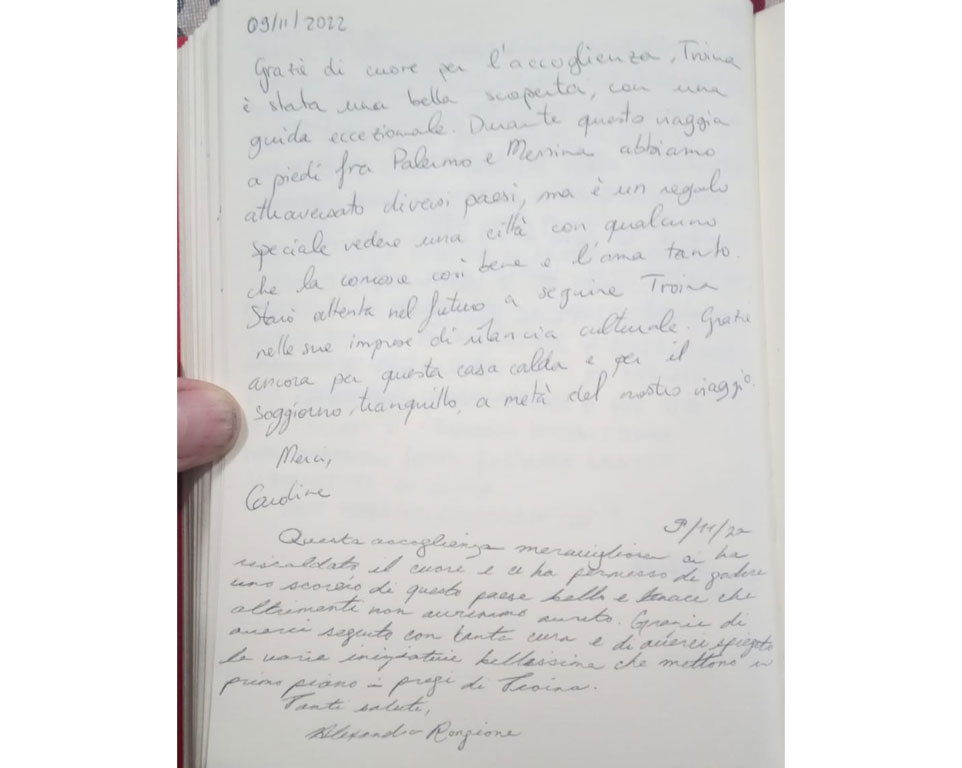 09/11/2022
Gratie di cuore per l'accoglienza, Troina
è stata una bella scoperta, con una
guida eccezionale. Durante questo viaggio
a piedi fra Palermo e Messina abbiamo
attraversato diversi paesi, ma è un regalo
speciale vedere una città con qualcuno
che la conosce così bene e l'ama tanto.
Starò attenta nel futuro a seguire Troina
nelle sue imprese di rilancia culturale. Gratie
ancora per questa casa calda e per il
soggiorno, tranquillo, a metà del nostro viaggio.
Merci,
9/11/22
Questa accoglienza meravigliosa ci ha
riscaldato il cuore e ci ha permesso di godere
uno scorcio di questo paese bello e tenace che
altrimenti non avremmo avuto. Grazie di
averci seguito con tanta cura e di averci spiegato
le varie iniziative bellissime che mettono in
primo piano i pregi di Troina.
Tanti saluti,
Alexandra Rongione